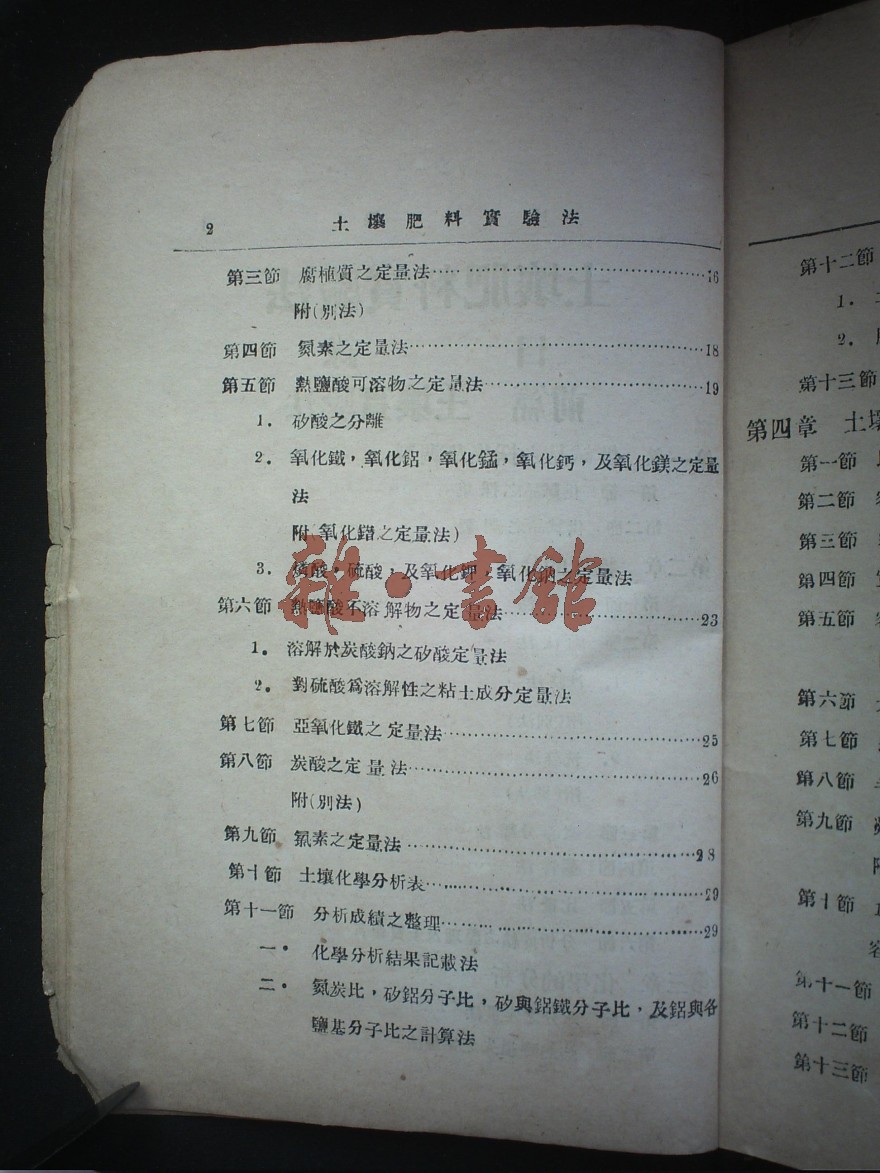 2 土壤肥料實驗法
第三節 腐植質之定量法……………………………16
附(別法)
第四節 氮素之定量法……………………………18
第五節 熱鹽酸可溶物之定量法……………………………19
1. 矽酸之分離
2. 氧化鐵，氧化鋁，氧化錳，氧化鈣，及氧化鎂之定量
法
附(氧化鐕之定量法)
3. 燐酸，硫酸，及氧化鉀，氧化鈉之定量法
第六節 熱鹽酸不溶解物之定量法……………………………23
1. 溶解於炭酸鈉之矽酸定量法
2. 對硫酸爲溶解性之粘土成分定量法
第七節 亞氧化鐵之定量法……………………………25
第八節 炭酸之定量法……………………………26
附(別法)
第九節 氯素之定量法……………………………28
第十節 土壤化學分析表……………………………29
第十一節 分析成績之整理……………………………29
一. 化學分析結果記載法
二. 氮炭比，矽鋁分子比，矽與鋁鐵分子比，及鋁與各
鹽基分子比之計算法
雜·書館
第十二節
1.
2.
第十三節
第四章 土壤
第一節
第二節
第三節
第四節
第五節
第六節
第七節
第八節
第九節
第十節
第十一節
第十二節
第十三節